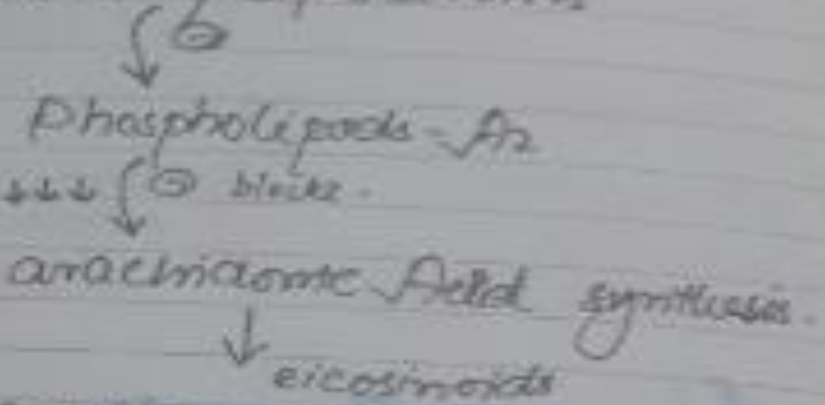 Phospholipods - A2
↓↓↓ ⊖ blocks.
arachidonic Acid synthesis.
eicosinoids